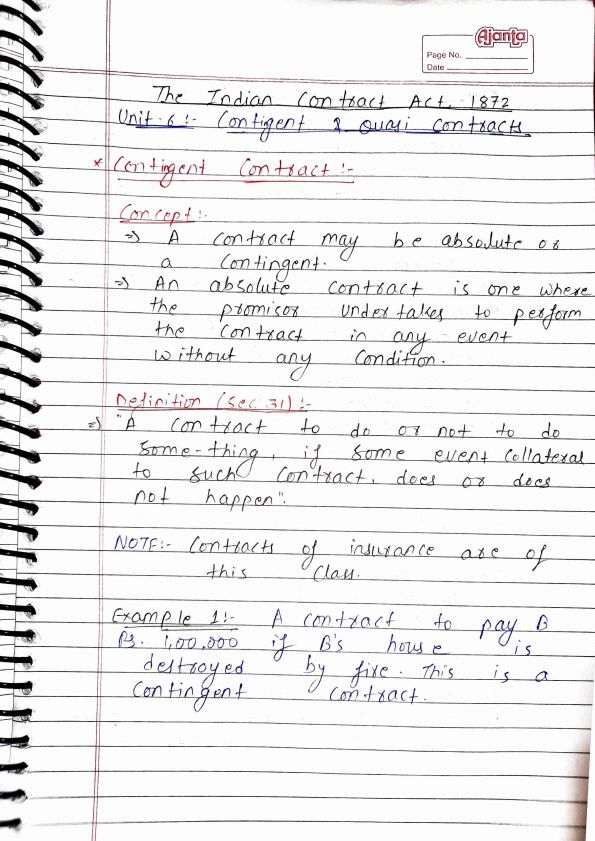 Ajanta
Page No.
Date
The Indian Contract Act, 1872
Unit-6:- Contigent & Quasi Contracts.
* Contingent Contract:-
Concept:-
=> A contract may be absolute or
a contingent.
=> An absolute contract is one where
the promisor undertakes to perform
the contract in any event
without any condition.
Definition (Sec. 31):-
=> "A contract to do or not to do
some-thing, if some event collateral
to such contract, does or does
not happen".
NOTE:- Contracts of insurance are of
this class.
Example 1:- A contract to pay B
Rs. 1,00,000 if B's house is
destroyed by fire. This is a
contingent contract.